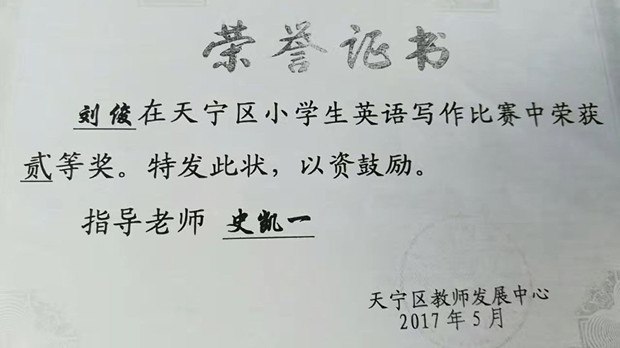 荣誉证书
刘俊在天宁区小学生英语写作比赛中荣获
贰等奖。特发此状，以资鼓励。
指导老师 史凯一
天宁区教师发展中心
2017年5月